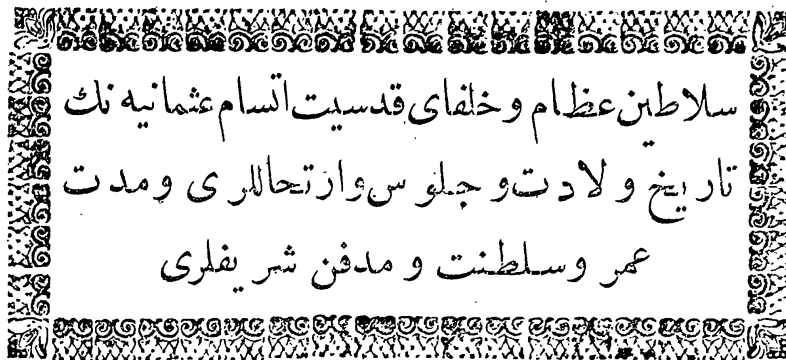 سلاطین عظام و خلفای قدسیت اتسام عثمانیه نك
تاریخ ولادت و جلوس و ارتحاللری و مدت
عمر و سلطنت و مدفن شریفلری